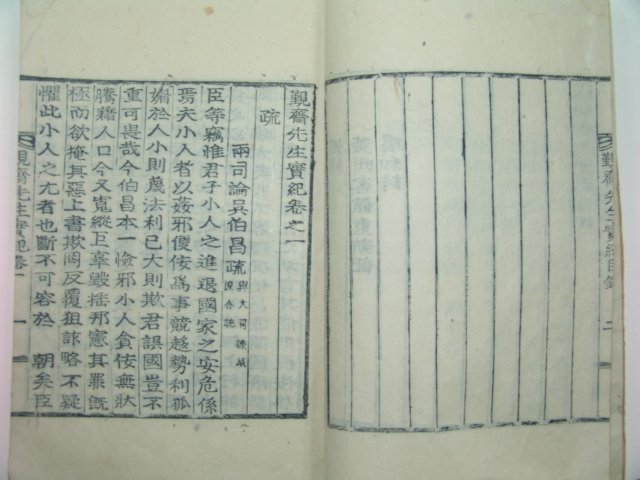 覲齋先生實紀目錄
二
覲齋先生實紀卷之一
疏
兩司論吳伯昌疏 與大司諫成
俊合疏
臣等竊惟君子小人之進退國家之安危係
焉夫小人者以姦邪儍侫爲事競趍勢利狐
媚於人小則蔑法利己大則欺君誤國豈不
重可畏哉今伯昌本一憸邪小人貪侫無狀
騰藉人口今又寬縱巨辜毁撓邢憲其罪旣
極而欲掩其惡上書欺罔反覆狙詐略不疑
懼此小人之尤者也斷不可容於 朝矣臣
覲齋先生實紀卷一
一